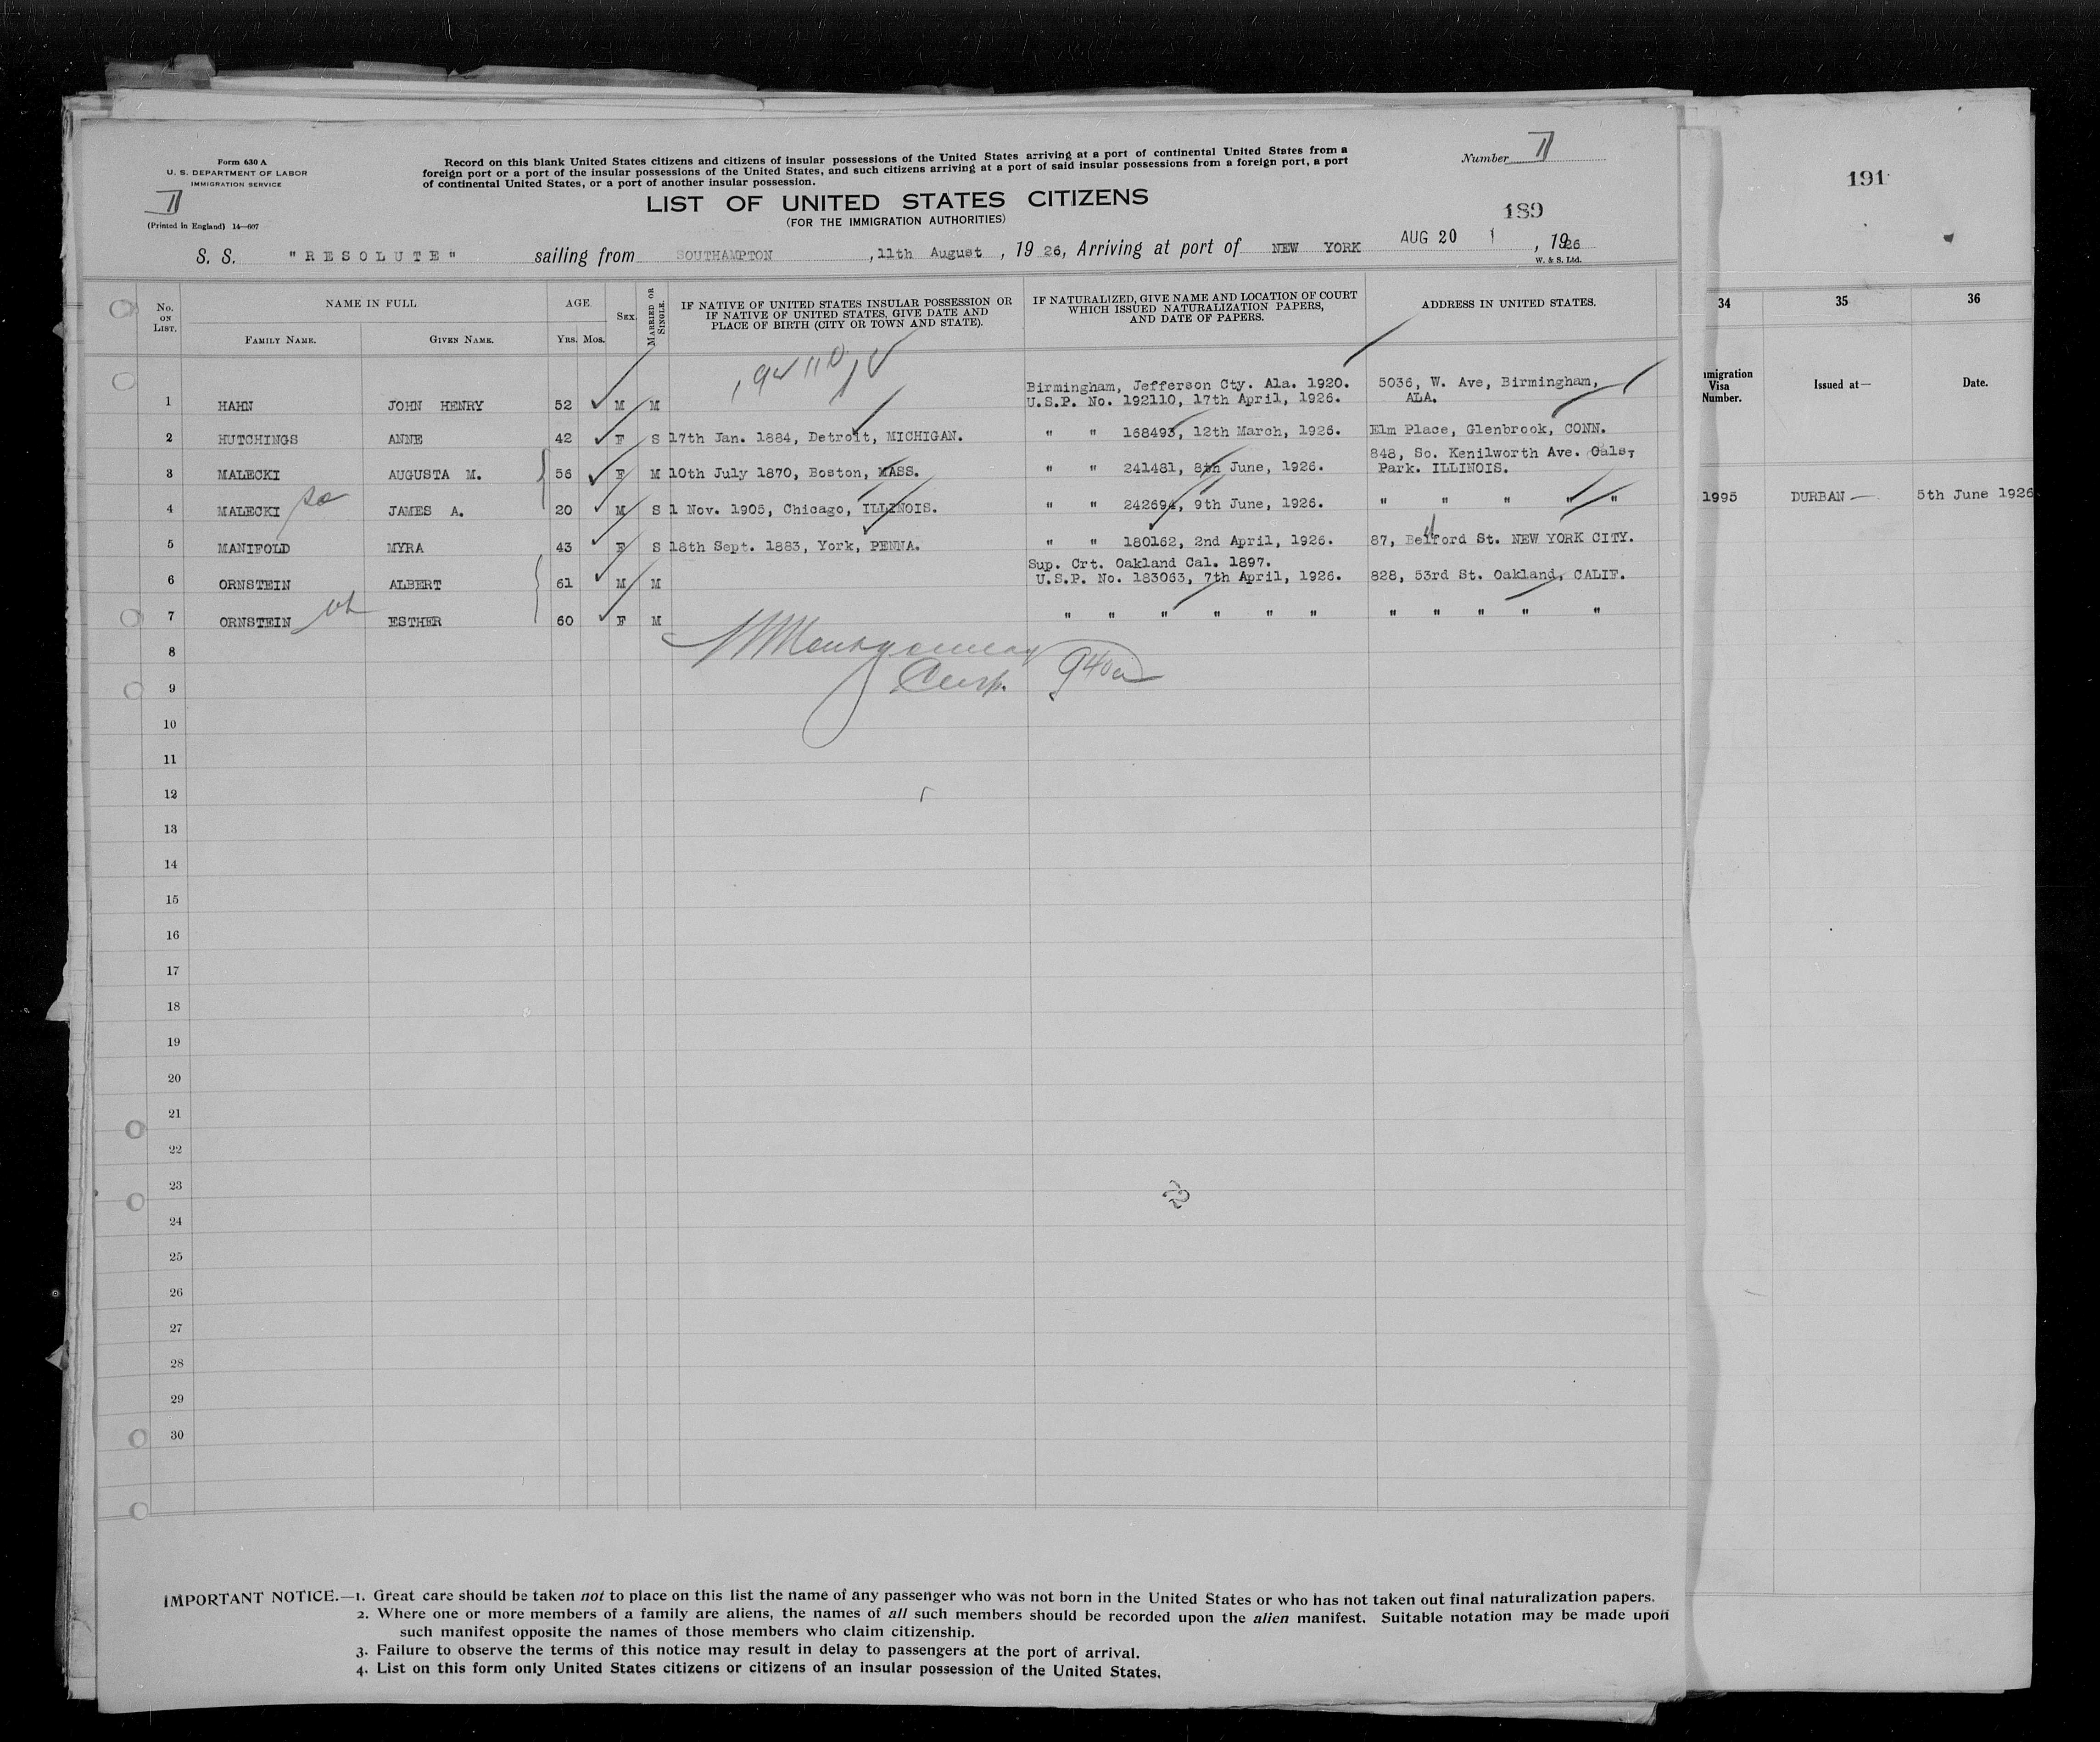 Form 630 A
U. S. DEPARTMENT OF LABOR
IMMIGRATION SERVICE
(Printed in England) 14—607
Record on this blank United States citizens and citizens of insular possessions of the United States arriving at a port of continental United States from a
foreign port or a port of the insular possessions of the United States, and such citizens arriving at a port of said insular possessions from a foreign port, a port
of continental United States, or a port of another insular possession.
Number
LIST OF UNITED STATES CITIZENS
(FOR THE IMMIGRATION AUTHORITIES)
189
191
S. S. "RESOLUTE" sailing from SOUTHAMPTON, 11th August, 1926, Arriving at port of NEW YORK AUG 20, 1926
W. & S. Ltd.
No. ON LIST.
NAME IN FULL
FAMILY NAME. GIVEN NAME.
AGE
YRS. MOS.
SEX.
MARRIED OR SINGLE.
IF NATIVE OF UNITED STATES INSULAR POSSESSION OR
IF NATIVE OF UNITED STATES, GIVE DATE AND
PLACE OF BIRTH (CITY OR TOWN AND STATE).
IF NATURALIZED, GIVE NAME AND LOCATION OF COURT
WHICH ISSUED NATURALIZATION PAPERS,
AND DATE OF PAPERS.
ADDRESS IN UNITED STATES.
34 35 36
Visa
Number.
Issued at—
Date.
Birmingham, Jefferson Cty. Ala. 1920. 5036, W. Ave, Birmingham,
1 HAHN JOHN HENRY 52 M M U.S.P. No. 192110, 17th April, 1926. ALA.
2 HUTCHINGS ANNE 42 F S 17th Jan. 1884, Detroit, MICHIGAN. " " 168493, 12th March, 1926. Elm Place, Glenbrook, CONN.
848, So. Kenilworth Ave.
3 MALECKI AUGUSTA M. 56 F M 10th July 1870, Boston, MASS. " " 241481, 8th June, 1926. Park. ILLINOIS.
4 MALECKI JAMES A. 20 M S 1 Nov. 1905, Chicago, ILLINOIS. " " 242694, 9th June, 1926. " " " " "
1995 DURBAN — 5th June 1926
5 MANIFOLD MYRA 43 F S 18th Sept. 1883, York, PENNA. " " 180162, 2nd April, 1926. 87, Bedford St. NEW YORK CITY.
Sup. Crt. Oakland Cal. 1897.
6 ORNSTEIN ALBERT 61 M M U.S.P. No. 183063, 7th April, 1926. 828, 53rd St. Oakland, CALIF.
7 ORNSTEIN ESTHER 60 F M " " " " " " " " " " "
8
9
10
11
12
13
14
15
16
17
18
19
20
21
22
23
24
25
26
27
28
29
30
IMPORTANT NOTICE.—1. Great care should be taken not to place on this list the name of any passenger who was not born in the United States or who has not taken out final naturalization papers.
2. Where one or more members of a family are aliens, the names of all such members should be recorded upon the alien manifest. Suitable notation may be made upon
such manifest opposite the names of those members who claim citizenship.
3. Failure to observe the terms of this notice may result in delay to passengers at the port of arrival.
4. List on this form only United States citizens or citizens of an insular possession of the United States.